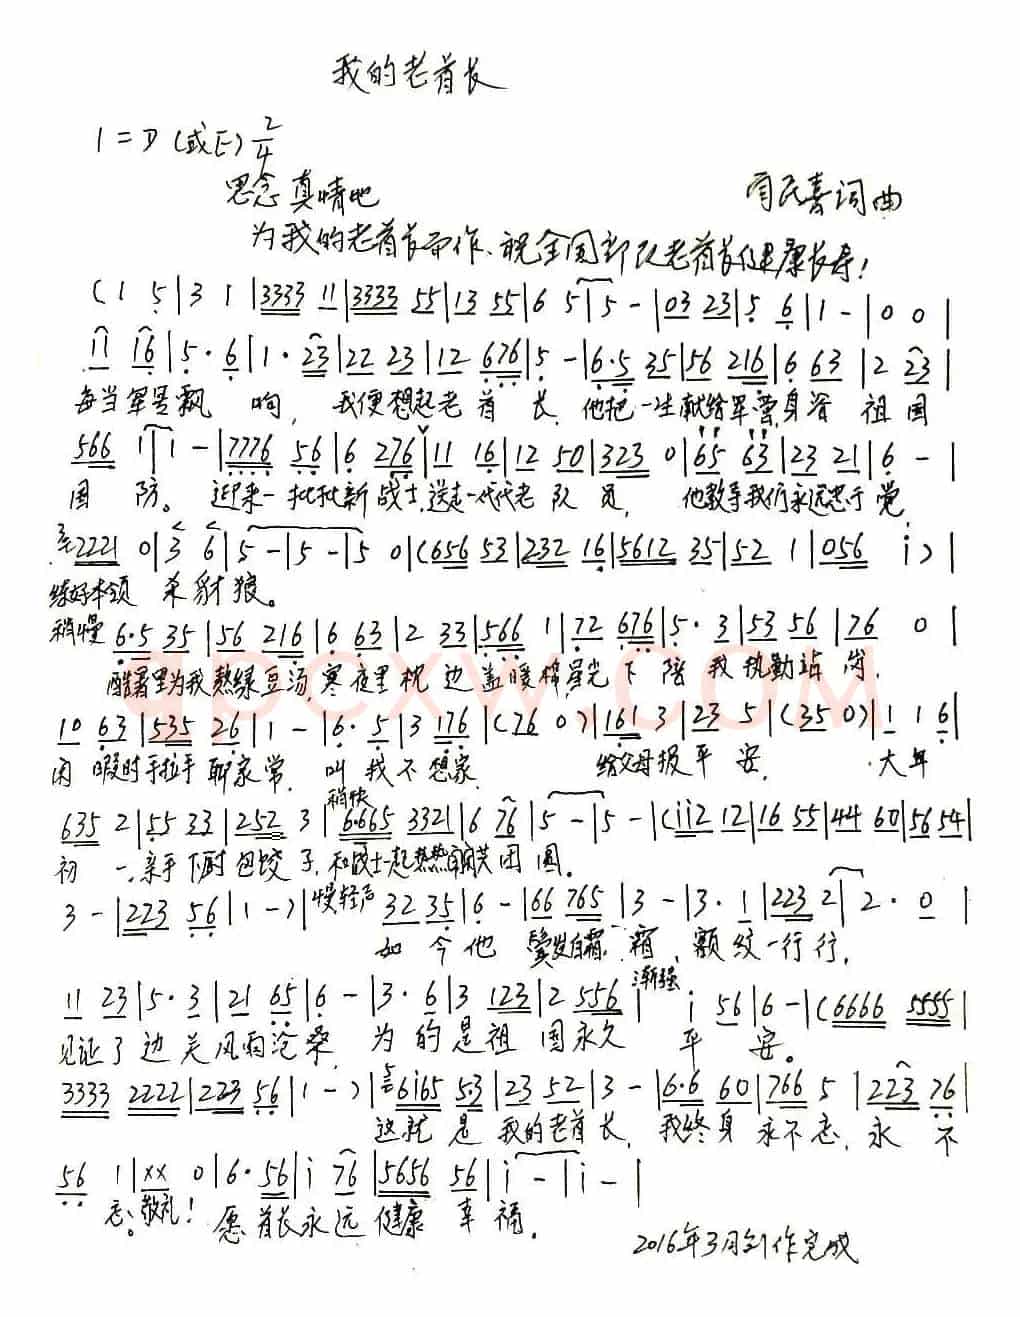 我的老首长
1=D (或E) 2/4
思念 真情地
肖民喜词曲
为我的老首长而作、祝全国部队老首长健康长寿!
(1 5|3 1|3333 11|3333 55|13 55|6 5|5 -|03 23|5 6|1 -|0 0|
11 16|5· 6|1· 23|22 23|12 676|5 -|6·5 35|56 216|6 63|2 23|
每当军号飘响, 我便想起老首长, 他把一生献给军营,身省祖国
566 1|1 -|7776 56|6 276|11 16|12 50|323 0|65 63|23 21|6 -|
国防。迎来一批批新战士,送走一代代老队员, 他教导我们永远忠于党
2221 0|3 6|5 -|5 -|5 0|(656 53|232 16|5612 35|52 1|056 i)|
练好本领 杀豺狼。
稍慢 6·5 35|56 216|6 63|2 33|566 1|72 676|5· 3|53 56|76 0|
酷暑里为我熬绿豆汤,寒夜里枕边盖暖棉,星光下陪我执勤站岗,
10 63|535 26|1 -|6· 5|3 176|(76 0)|161 3|23 5|(35 0)|1 1 6|
闲暇时手拉手聊家常, 叫我不想家 给父母报平安, 大年
稍快
635 2|55 33|252 3|6·665 3321|6 76|5 -|5 -|(ii2 12|16 55|44 60|56 54|
初一,亲手下厨包饺子,和战士一起热热闹闹共团圆。
3 -|223 56|1 -)|慢轻声 32 35|6 -|66 765|3 -|3· 1|223 2|2· 0|
如今他鬓发白霜霜,额纹一行行,
渐强
11 23|5· 3|21 65|6 -|3· 6|3 123|2 556|i 56|6 -|(6666 5555|
见证了边关风雨沧桑 为的是祖国永久平安。
3333 2222|223 56|1 -)|6i65 5·3|23 52|3 -|6·6 60|766 5|223 76|
这就是我的老首长, 我终身永不忘, 永不
56 1|xx 0|6· 56|i 76|5656 56|i -|i -|
忘。敬礼! 愿首长永远健康幸福。
2016年3月创作完成